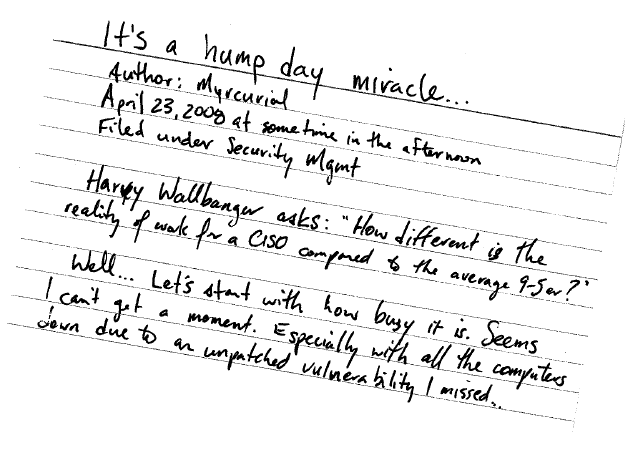 It's a hump day miracle...
Author: Myrcurial
April 23, 2008 at sometime in the afternoon
Filed under Security Mgmt
Harvey Wallbanger asks: "How different is the
reality of work for a CISO compared to the average 9-5er?"
Well... Let's start with how busy it is. Seems
I can't get a moment. Especially with all the computers
down due to an unpatched vulnerability I missed...